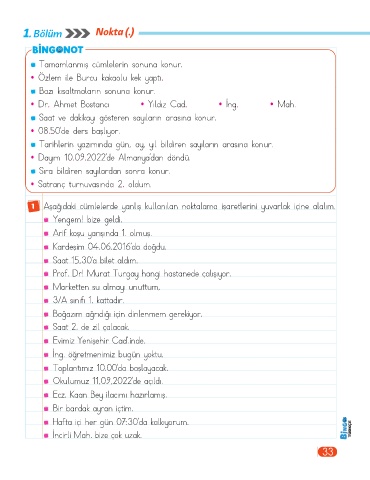 1. Bölüm Nokta (.)
BİNGO NOT
Tamamlanmış cümlelerin sonuna konur.
Özlem ile Burcu kakaolu kek yaptı.
Bazı kısaltmaların sonuna konur.
Dr. Ahmet Bostancı • Yıldız Cad. • İng. • Mah.
Saat ve dakikayı gösteren sayıların arasına konur.
08.50'de ders başlıyor.
Tarihlerin yazımında gün, ay, yıl bildiren sayıların arasına konur.
Dayım 10.09.2022'de Almanya'dan döndü.
Sıra bildiren sayılardan sonra konur.
Satranç turnuvasında 2. oldum.
1 Aşağıdaki cümlelerde yanlış kullanılan noktalama işaretlerini yuvarlak içine alalım.
Yengem! bize geldi.
Arif koşu yarışında 1. olmuş.
Kardeşim 04.06.2016'da doğdu.
Saat 15,30'a bilet aldım.
Prof. Dr! Murat Turgay hangi hastanede çalışıyor.
Marketten su almayı unuttum,
3/A sınıfı 1. kattadır.
Boğazım ağrıdığı için dinlenmem gerekiyor.
Saat 2. de zil çalacak.
Evimiz Yenişehir Cad'inde.
İng. öğretmenimiz bugün yoktu.
Toplantımız 10.00'da başlayacak.
Okulumuz 11,09,2022'de açıldı.
Ecz. Kaan Bey ilacımı hazırlamış.
Bir bardak ayran içtim.
Hafta içi her gün 07:30'da kalkıyorum.
İncirli Mah, bize çok uzak.
BİNGO TÜRKÇE
33